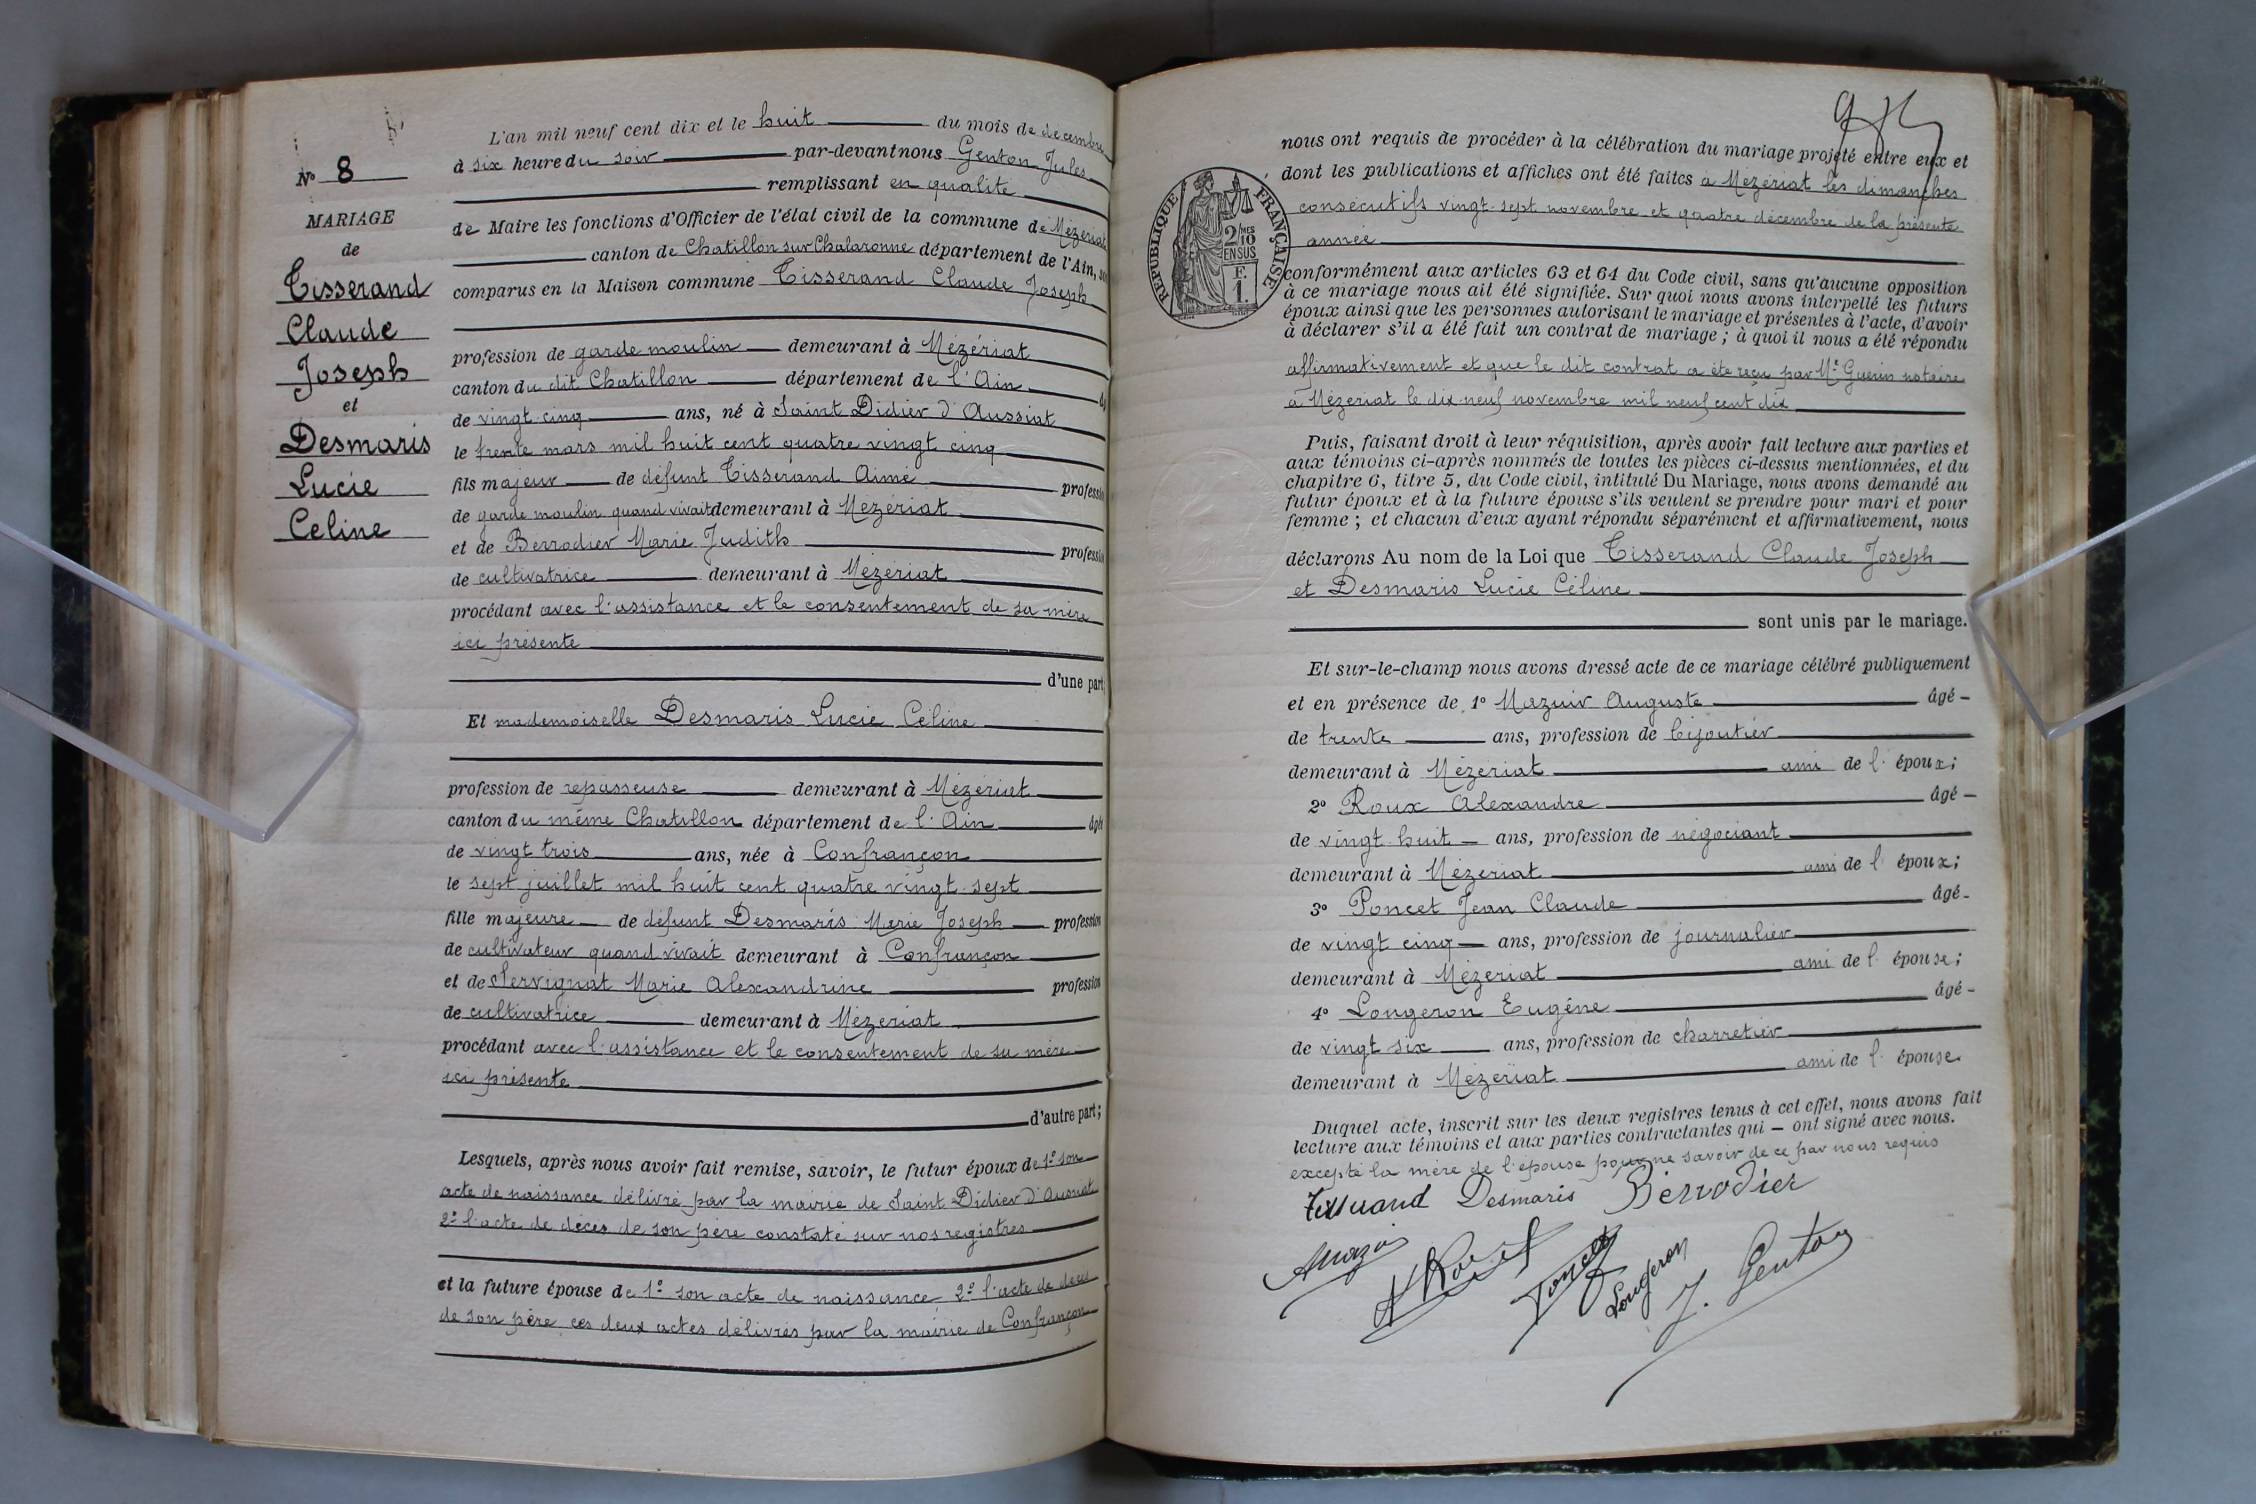 L'an mil neuf cent dix et le huit du mois de décembre
à six heure du soir par-devant nous Genton Jules
Nº 8
remplissant en qualité
MARIAGE
de Maire les fonctions d'Officier de l'état civil de la commune de Mézériat
de
canton de Chatillon sur Chalaronne département de l'Ain, son
Tisserand
comparus en la Maison commune Tisserand Claude Joseph
Claude
Joseph
et
Desmaris
Lucie
Celine
profession de garde moulin demeurant à Mézériat
canton du dit Chatillon département de l'Ain âg
de vingt cinq ans, né à Saint Didier d'Aussiat
le trente mars mil huit cent quatre vingt cinq
fils majeur de défunt Tisserand Aimé profession
de garde moulin quand vivait demeurant à Mézériat
et de Berrodier Marie Judith profession
de cultivatrice demeurant à Mézériat
procédant avec l'assistance et le consentement de sa mère
ici présente
d'une part
Et mademoiselle Desmaris Lucie Céline
profession de repasseuse demeurant à Mézériat
canton du même Chatillon département de l'Ain âgée
de vingt trois ans, née à Confrançon
le sept juillet mil huit cent quatre vingt-sept
fille majeure de défunt Desmaris Marie Joseph profession
de cultivateur quand vivait demeurant à Confrançon
et de Servignat Marie Alexandrine profession
de cultivatrice demeurant à Mézériat
procédant avec l'assistance et le consentement de sa mère
ici présente
d'autre part;
Lesquels, après nous avoir fait remise, savoir, le futur époux de 1º son
acte de naissance délivré par la mairie de Saint Didier d'Aussiat
2º l'acte de décès de son père constaté sur nos registres
et la future épouse de 1º son acte de naissance 2º l'acte de décès
de son père ces deux actes délivrés par la mairie de Confrançon
nous ont requis de procéder à la célébration du mariage projeté entre eux et
dont les publications et affiches ont été faites à Mézériat les dimanches
consécutifs vingt-sept novembre et quatre décembre de la présente
année
RÉPUBLIQUE FRANÇAISE
2/MES
10
EN SUS
F.
1.
conformément aux articles 63 et 64 du Code civil, sans qu'aucune opposition
à ce mariage nous ait été signifiée. Sur quoi nous avons interpellé les futurs
époux ainsi que les personnes autorisant le mariage et présentes à l'acte, d'avoir
à déclarer s'il a été fait un contrat de mariage; à quoi il nous a été répondu
affirmativement et que le dit contrat a été reçu par Me Guerin notaire
à Mézériat le dix-neuf novembre mil neuf cent dix
Puis, faisant droit à leur réquisition, après avoir fait lecture aux parties et
aux témoins ci-après nommés de toutes les pièces ci-dessus mentionnées, et du
chapitre 6, titre 5, du Code civil, intitulé Du Mariage, nous avons demandé au
futur époux et à la future épouse s'ils veulent se prendre pour mari et pour
femme; et chacun d'eux ayant répondu séparément et affirmativement, nous
déclarons Au nom de la Loi que Tisserand Claude Joseph
et Desmaris Lucie Céline
sont unis par le mariage.
Et sur-le-champ nous avons dressé acte de ce mariage célébré publiquement
et en présence de 1º Mazuir Auguste âgé -
de trente ans, profession de bijoutier
demeurant à Mézériat ami de l'époux;
2º Roux Alexandre âgé -
de vingt huit ans, profession de négociant
demeurant à Mézériat ami de l'époux;
3º Poncet Jean Claude âgé -
de vingt cinq ans, profession de journalier
demeurant à Mézériat ami de l'épouse;
4º Longeron Eugéne âgé -
de vingt six ans, profession de charretier
demeurant à Mézériat ami de l'épouse.
Duquel acte, inscrit sur les deux registres tenus à cet effet, nous avons fait
lecture aux témoins et aux parties contractantes qui - ont signé avec nous.
excepté la mère de l'épouse pour ne savoir de ce par nous requis
Tisserand Desmaris Berrodier
Roux Poncet Longeron J. Genton